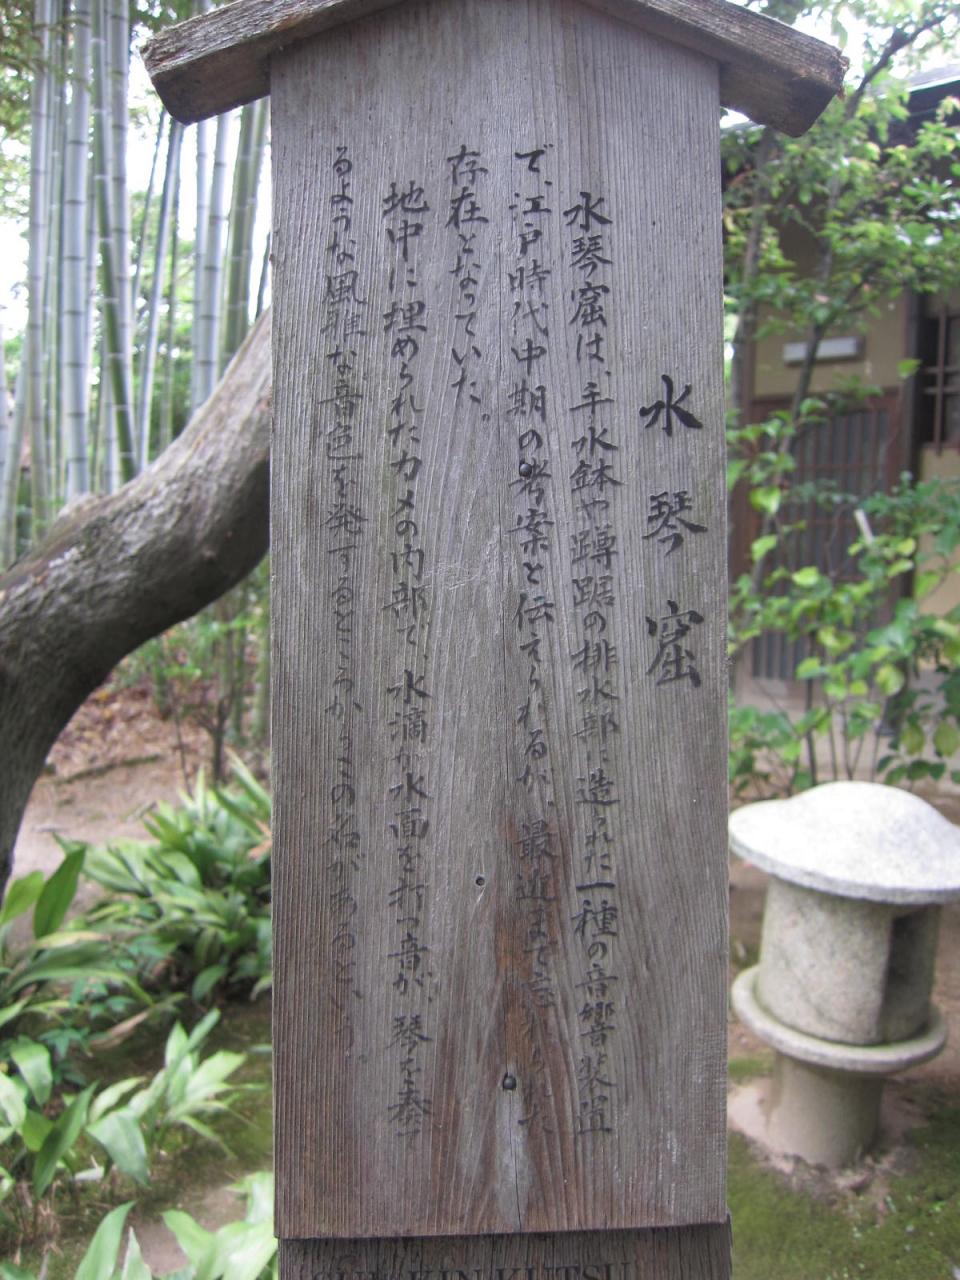 水琴窟
水琴窟は、手水鉢や蹲踞の排水部に造られた一種の音響装置
で、江戸時代中期の考案と伝えられるが、最近まで忘れられた
存在となっていた。
地中に埋められたカメの内部で、水滴が水面を打つ音が、琴を奏で
るような風雅な音色を発するところからこの名があるという。
SUI KIN KUTSU